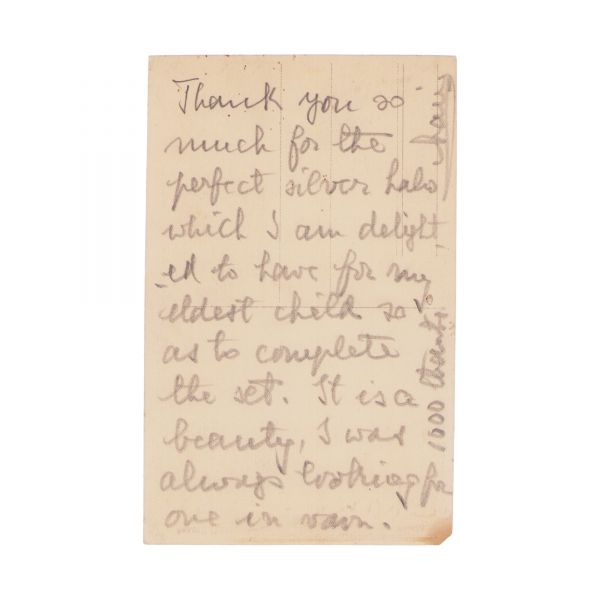 Thank you so
much for the
perfect silver halo
which I am delight
ed to have for my
eldest child so
as to complete
the set. It is a
beauty, I was
always looking for
one in vain.
1000 thanks